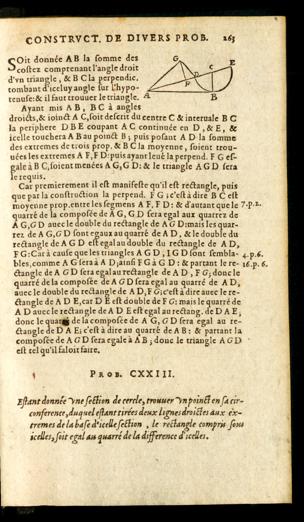 CONSTRVCT. DE DIVERS PROB. 265
SOit donnée AB la somme des
costez comprenant l'angle droit
d'vn triangle, & BC la perpendic.
tombant d'iceluy angle sur l'hypo-
tenuse: & il faut trouuer le triangle.
Ayant mis AB, BC à angles
G E C D F A B
droicts, & ioinct AC, soit descrit du centre C & interuale BC
la periphere DBE coupant AC continuée en D, & E, &
icelle touchera AB au poinct B; puis posant AD la somme
des extremes de trois prop. & BC la moyenne, soient trou-
uées les extremes AF, FD: puis ayant leué la perpend. FG es-
gale à BC, soient menées AG, GD: & le triangle AGD sera
le requis.
Car premierement il est manifeste qu'il est rectangle, puis
que par la construction la perpend. FG (c'est à dire BC est
moyenne prop. entre les segmens AF, FD: & d'autant que le 7.p.2.
quarré de la composée de AG, GD sera egal aux quarrez de
AG, GD auec le double du rectangle de AGD: mais les quar-
rez de AG, GD sont egaux au quarré de AD, & le double du
rectangle de AGD est egal au double du rectangle de AD,
FG: Car à cause que les triangles AGD, FGD sont sembla- 4.p.6.
bles, comme AG sera à AD; ainsi FG à GD: & partant le re- 16.p.6.
ctangle de AGD sera egal au rectangle de AD, FG; donc le
quarré de la composée de AGD sera egal au quarré de AD,
auec le double du rectangle de AD, FG; c'est à dire auec le re-
ctangle de ADE, car DE est double de FG: mais le quarré de
AD auec le rectangle de ADE est egal au rectang. de DAE;
donc le quarré de la composée de AG, GD sera egal au re-
ctangle de DAE; c'est à dire au quarré de AB: & partant la
composée de AGD sera egale à AB; donc le triangle AGD
est tel qu'il faloit faire.
PROB. CXXIII.
Estant donnée vne section de cercle, trouuer vn poinct en sa cir-
conference, duquel estant tirées deux lignes droictes aux ex-
tremes de la base d'icelle section, le rectangle compris sous
icelles, soit egal au quarré de la difference d'icelles.